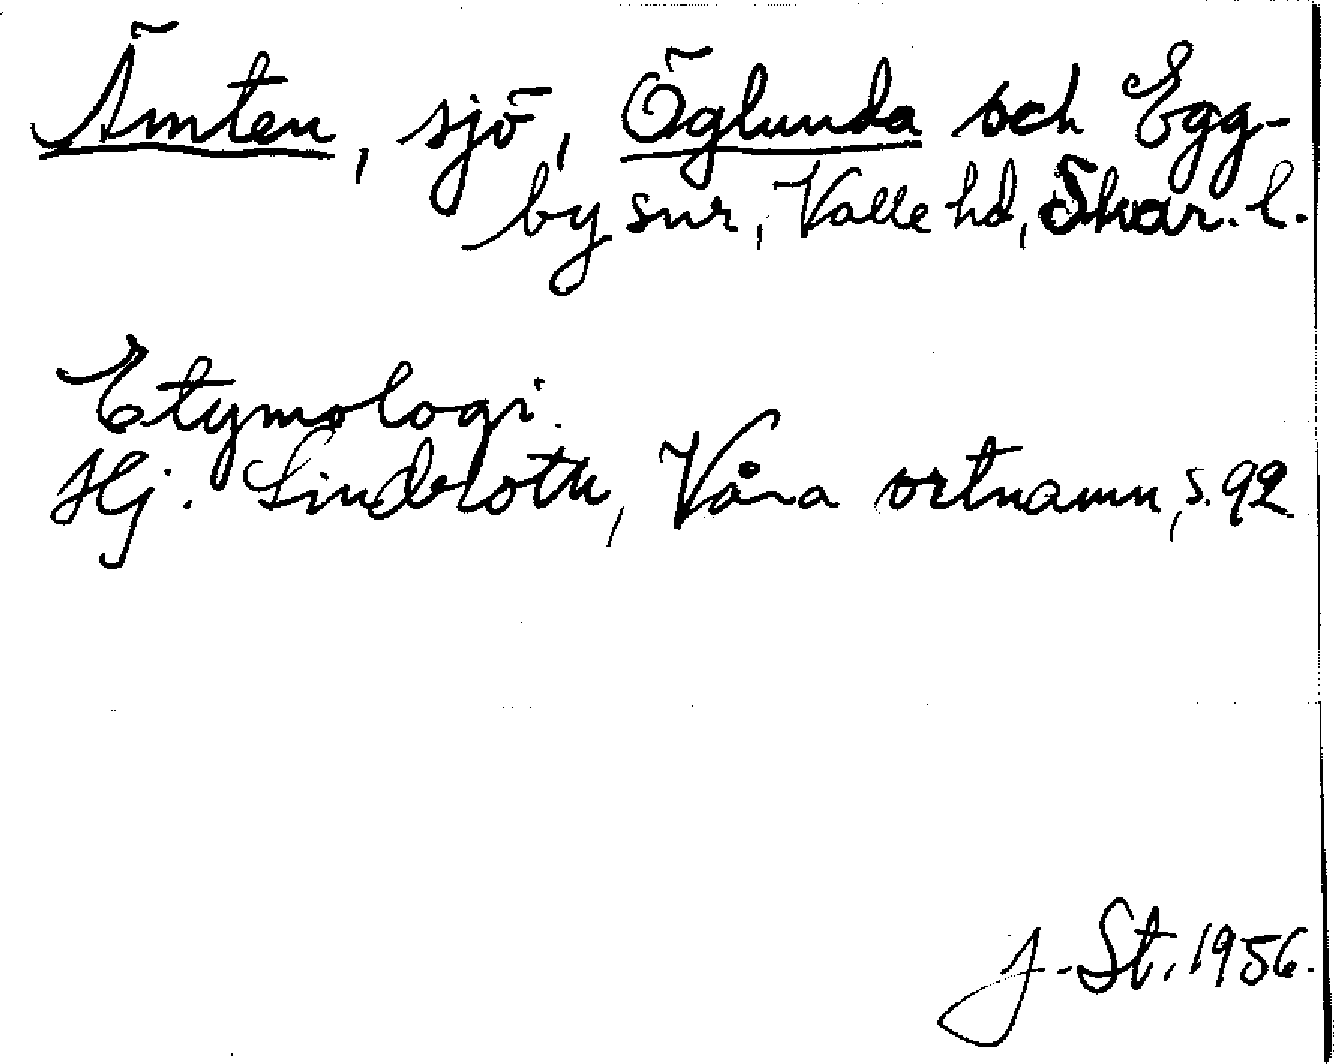 Ämten, sjö, Öglunda och Egg-
by snr, Valle hd, Skar. l.
Etymologi.
Hj. Lindroth, Våra ortnamn, s. 92
J. St. 1956.